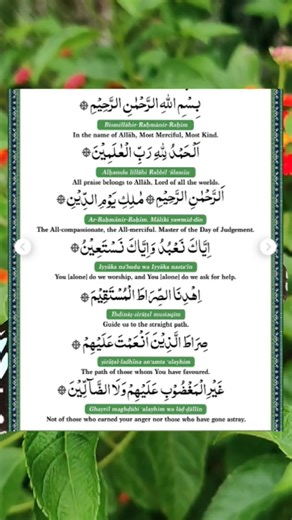 بِسْمِ اللهِ الرَّحْمٰنِ الرَّحِيْمِ
Bismillāhir-Raḥmānir-Raḥīm
In the name of Allāh, Most Merciful, Most Kind.
اَلْحَمْدُ لِلّٰهِ رَبِّ الْعٰلَمِيْنَ
Alḥamdu lillāhi Rabbil ‘ālamīn
All praise belongs to Allāh, Lord of all the worlds.
اَلرَّحْمٰنِ الرَّحِيْمِ مٰلِكِ يَوْمِ الدِّيْنِ
Ar-Raḥmānir-Raḥīm. Māliki yawmid-dīn
The All-compassionate, the All-merciful. Master of the Day of Judgement.
اِيَّاكَ نَعْبُدُ وَاِيَّاكَ نَسْتَعِيْنُ
Iyyāka na‘budu wa Iyyāka nasta‘īn
You [alone] do we worship, and You [alone] do we ask for help.
اِهْدِنَا الصِّرَاطَ الْمُسْتَقِيْمَ
Ihdinaṣ-ṣirāṭal mustaqīm
Guide us to the straight path.
صِرَاطَ الَّذِيْنَ اَنْعَمْتَ عَلَيْهِمْ
ṣirāṭal-ladhīna an‘amta ‘alayhim
The path of those whom You have favoured.
غَيْرِ الْمَغْضُوْبِ عَلَيْهِمْ وَلَا الضَّآلِّيْنَ
Ghayril maghḍūbi ‘alayhim wa lāḍ-ḍāllīn
Not of those who earned your anger nor those who have gone astray.